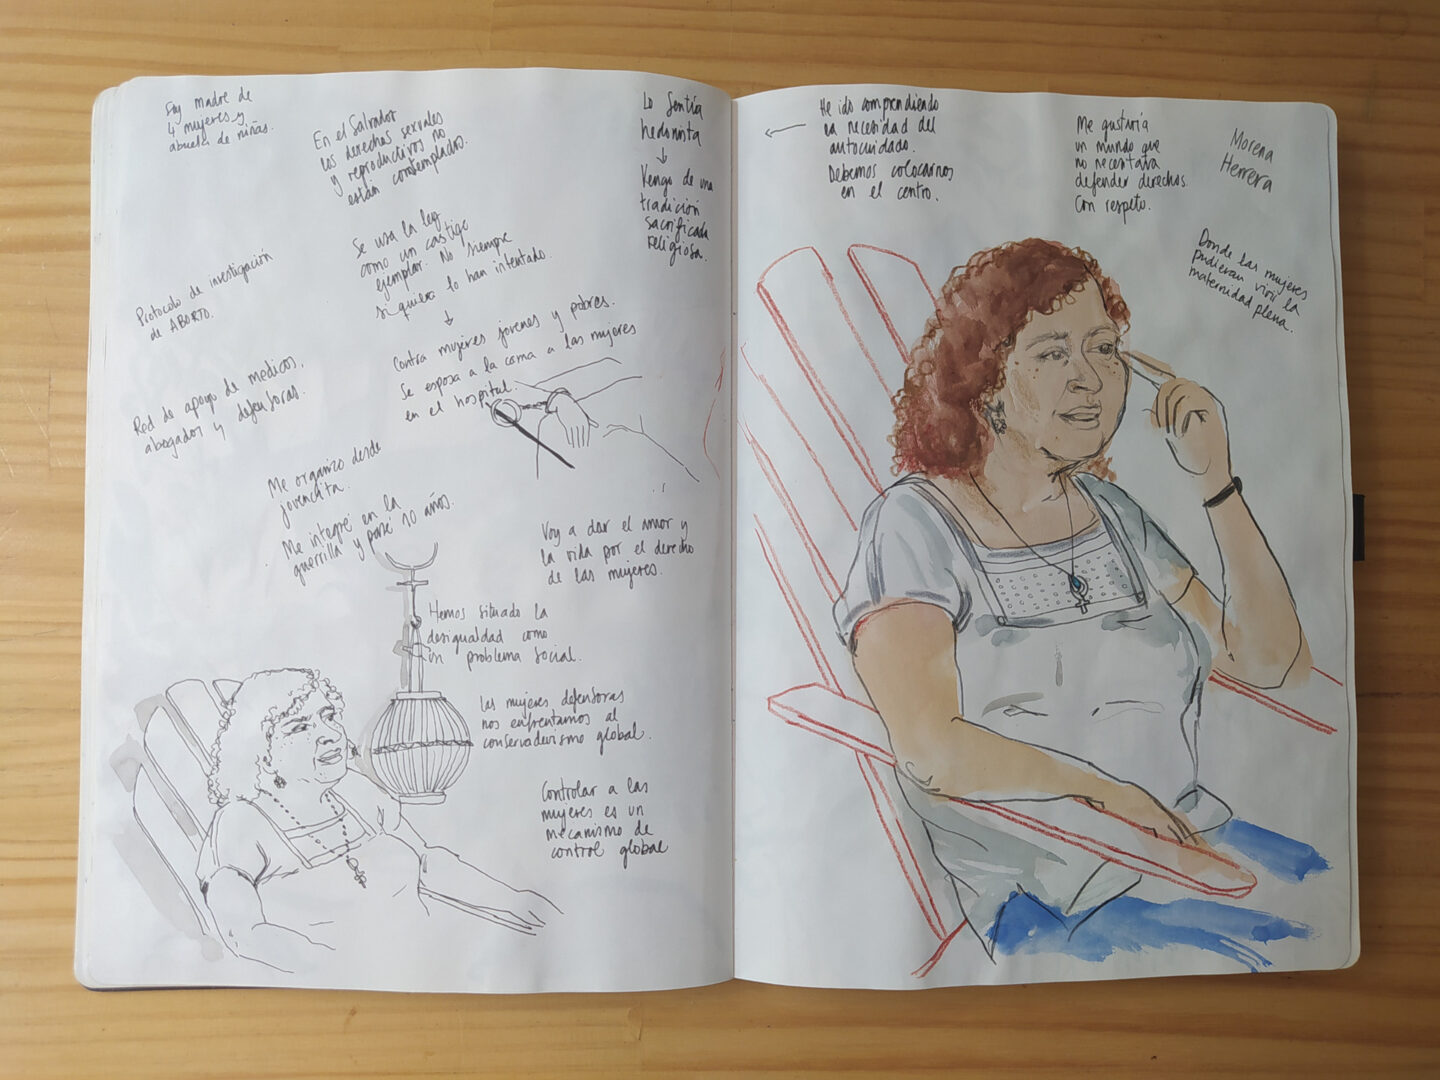 Soy madre de
4 mujeres y
abuela de niñas.
En el Salvador
los derechos sexuales
y reproductivos no
están contemplados.
Se usa la ley
como un castigo
ejemplar. No siempre
siquiera lo han intentado.
↓
Contra mujeres jóvenes y pobres.
Se esposa a la cama a las mujeres
en el hospital.
Protocolo de investigación
de ABORTO.
Red de apoyo de medicos,
abogados y defensoras.
Me organizo desde
jovencita.
Me integré en la
guerrilla y pasé 10 años.
Voy a dar el amor y
la vida por el derecho
de las mujeres.
Hemos situado la
desigualdad como
un problema social.
Las mujeres defensoras
nos enfrentamos al
conservadurismo global.
Controlar a las
mujeres es un
mecanismo de
control global
Lo sentía
hedonista
↓
Vengo de una
tradición
sacrificada
religiosa.
He ido comprendiendo
la necesidad del
autocuidado.
Debemos colocarnos
en el centro.
Me gustaría
un mundo que
no necesitara
defender derechos.
Con respeto.
Morena
Herrera
Donde las mujeres
pudieran vivir la
maternidad plena.